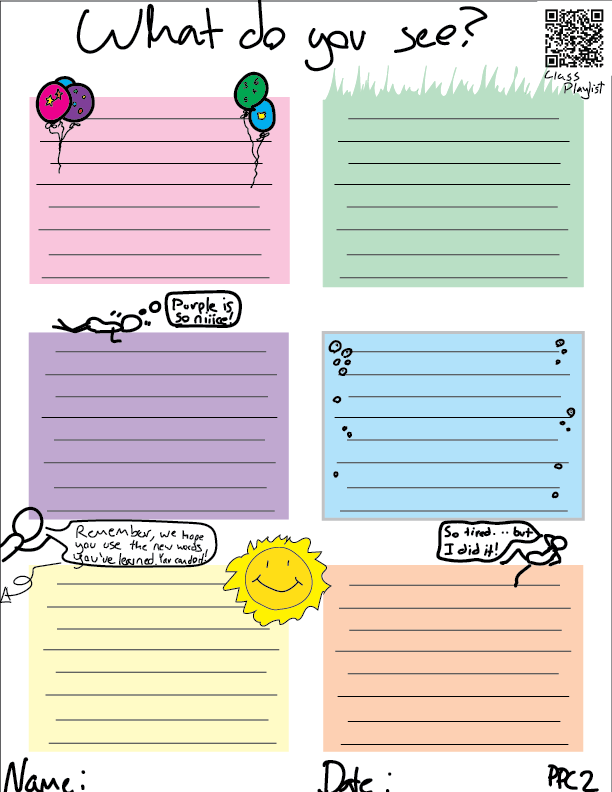 What do you see?
Class
Playlist
Purple is
so niiice!
Remember, we hope
you use the new words
you've learned. You can do it!
So tired... but
I did it!
Name:
Date:
PPC2